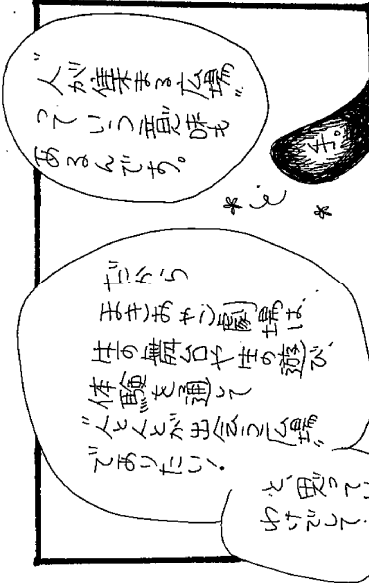 "人が集まる広場"
っていう意味も
あるんです。
だから
劇場は、
生の舞台や生の遊び、
体験を通して
"人と人とが出会う広場"
でありたい!
と、思ってい
わけでして